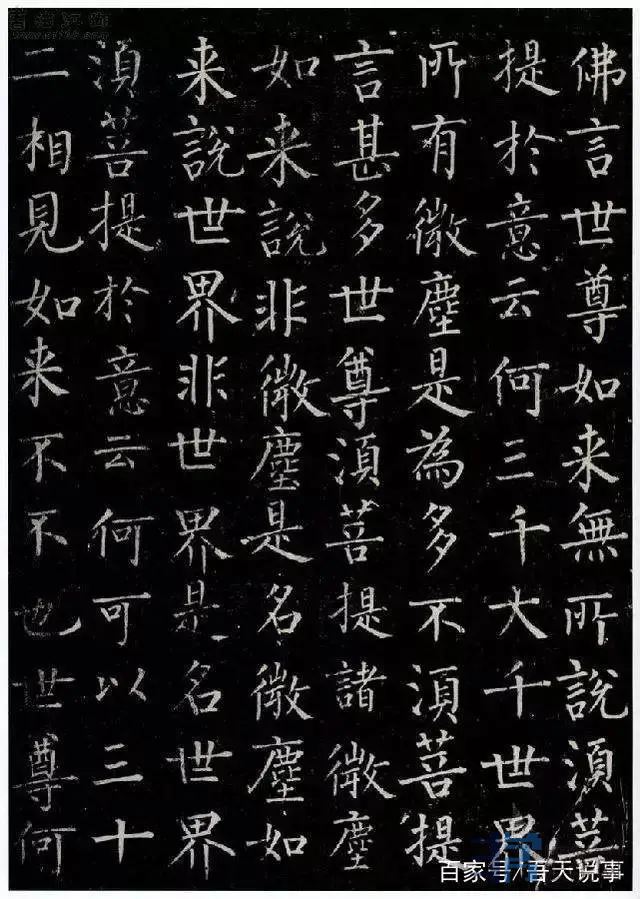 佛言世尊如来無所說湏菩
提於意云何三千大千世界
所有微塵是為多不湏菩提
言甚多世尊湏菩提諸微塵
如来說非微塵是名微塵如
来說世界非世界是名世界
湏菩提於意云何可以三十
二相見如来不不也世尊何
百家号/吾天说事